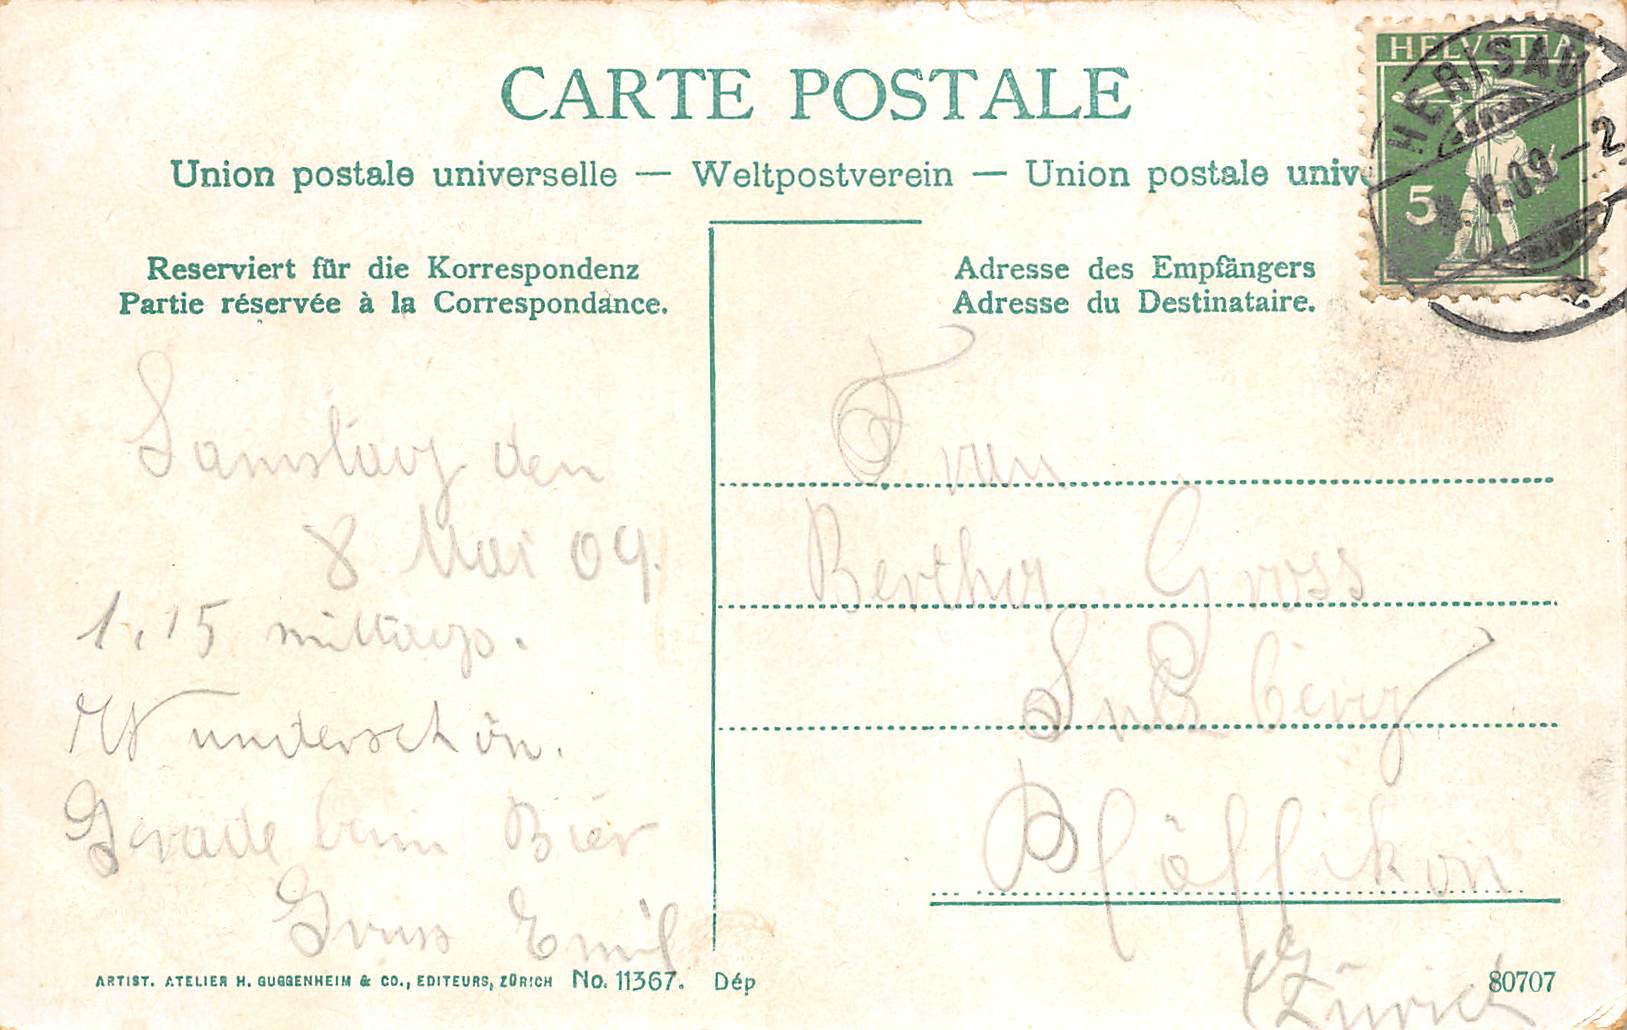 CARTE POSTALE
Union postale universelle — Weltpostverein — Union postale univ
HELVETIA
5
HERISAU
V.09–2
Reserviert für die Korrespondenz
Partie réservée à la Correspondance.
Adresse des Empfängers
Adresse du Destinataire.
Samstag den
8 Mai 09.
1.15 mittags.
Wunderschön.
Gerade beim Bier
Gruss Emil
Frau
Bertha Gross
Sulzberg
Pfäffikon
Zürich
ARTIST. ATELIER H. GUGGENHEIM & CO., EDITEURS, ZÜRICH No. 11367. Dép
80707